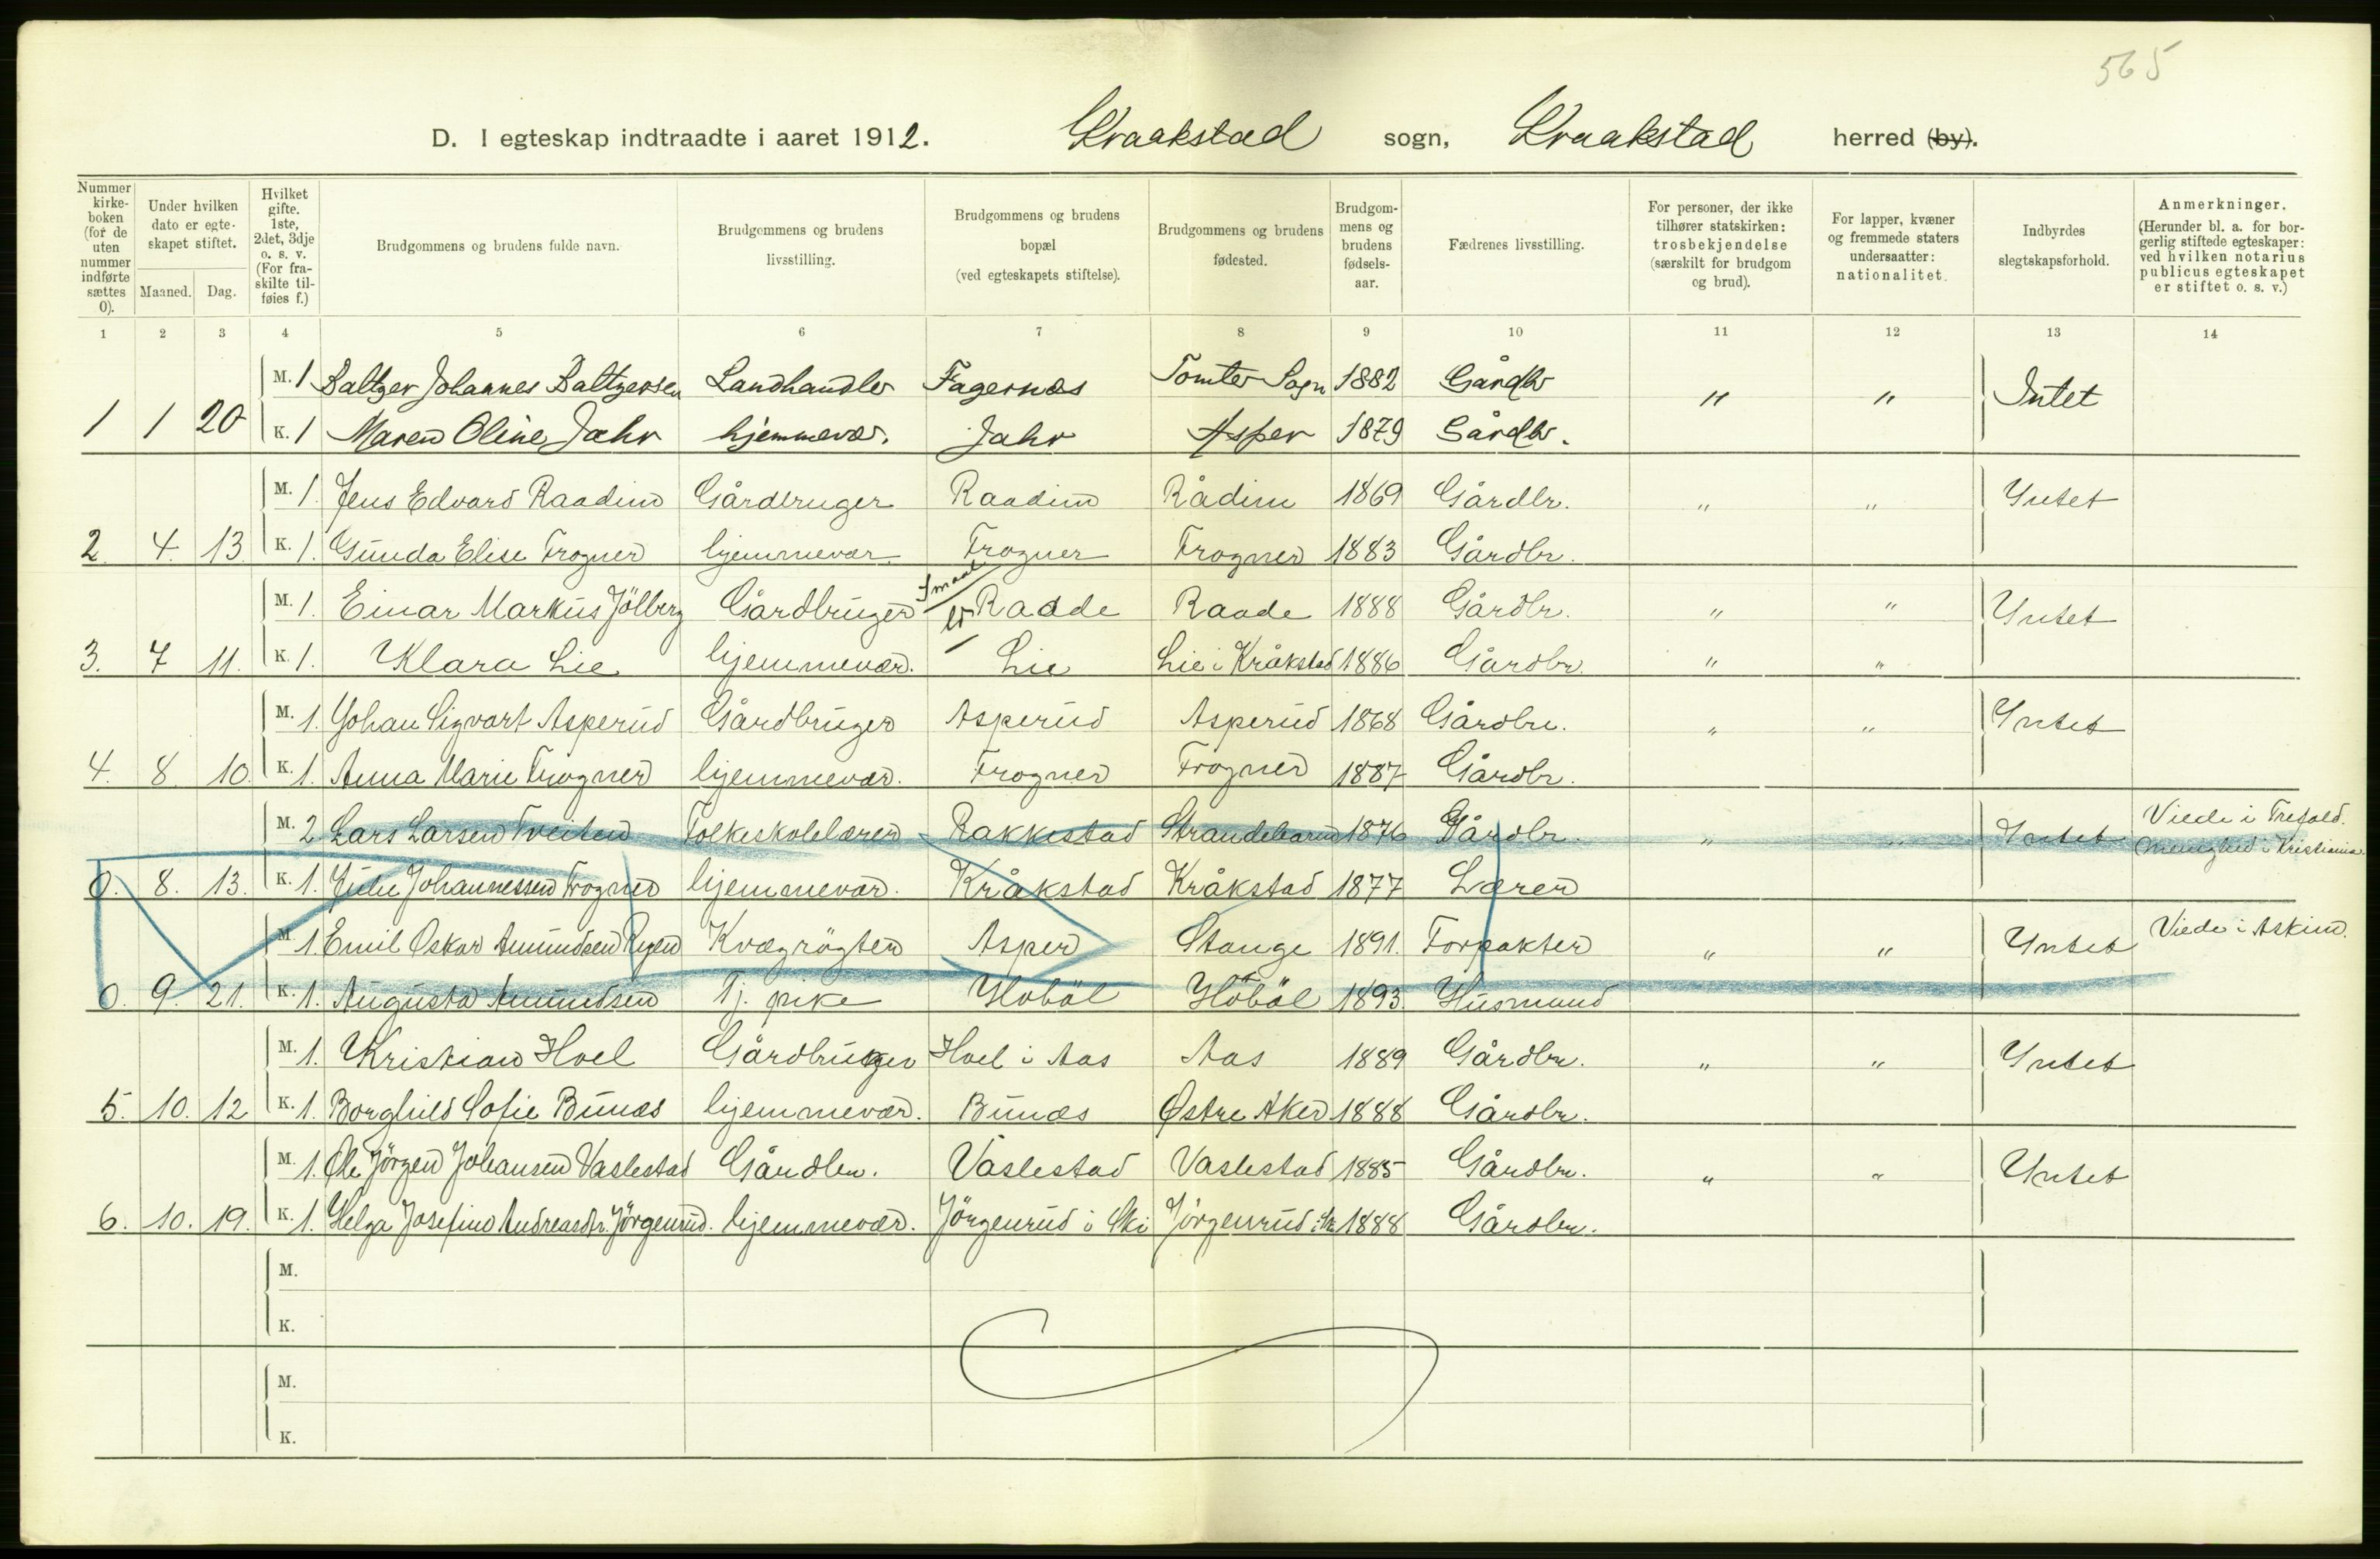 565
D. I egteskap indtraadte i aaret 1912. Kraakstad sogn, Kraakstad herred (by).
Nummer kirke-boken (for de uten nummer indførte sættes 0).
Under hvilken dato er egte-skapet stiftet.
Maaned. Dag.
Hvilket gifte. 1ste, 2det, 3dje o. s. v. (For fra-skilte til-føies f.)
Brudgommens og brudens fulde navn.
Brudgommens og brudens livsstilling.
Brudgommens og brudens bopæl (ved egteskapets stiftelse).
Brudgommens og brudens fødested.
Brudgom-mens og brudens fødsels-aar.
Fædrenes livsstilling.
For personer, der ikke tilhører statskirken: trosbekjendelse (særskilt for brudgom og brud).
For lapper, kvæner og fremmede staters undersaatter: nationalitet.
Indbyrdes slegtskapsforhold.
Anmerkninger. (Herunder bl. a. for bor-gerlig stiftede egteskaper: ved hvilken notarius publicus egteskapet er stiftet o. s. v.)
1 2 3 4 5 6 7 8 9 10 11 12 13 14
M. 1 Baltzer Johannes Baltzersen Landhandler Fagernæs Tomter Sogn 1882 Gårdbr " " Intet
1 1 20 K. 1 Maren Oline Jahr hjemmevær. Jahr Asper 1879 Gårdbr.
M. 1. Jens Edvard Raadim Gårdbruger Raadim Rådim 1869 Gårdbr. " " Intet
2. 4. 13. K. 1. Gunda Elise Frogner hjemmevær. Frogner Frogner 1883 Gårdbr.
M. 1. Einar Markus Jölberg Gårdbruger Raade Raade 1888 Gårdbr. " " Intet
3. 7 11. K. 1. Klara Lie hjemmevær. Lie Lie i Kråkstad 1886 Gårdbr. " "
M. 1. Johan Sigvart Asperud Gårdbruger Asperud Asperud 1868 Gårdbr. " " Intet
4. 8. 10. K. 1. Anna Marie Frogner hjemmevær. Frogner Frogner 1887 Gårdbr.
M. 2 Lars Larsen Tveiten Folkeskolelærer Rakkestad Strandebarm 1876 Gårdbr. " " Intet Viede i Trefold. menighed i Kristiania.
0. 8. 13. K. 1. Julie Johannessen Frogner hjemmevær. Kråkstad Kråkstad 1877 Lærer
M. 1. Emil Oskar Amundsen Ryen Kvægrögter Asper Stange 1891. Forpakter " " Intet Viede i Askim.
0. 9. 21. K. 1. Augusta Amundsen Tj. pike Hobøl Höböl 1893. Husmand
M. 1. Kristian Hoel Gårdbruger Hoel i Aas Aas 1889 Gårdbr. " " Intet
5. 10. 12 K. 1. Borghild Sofie Bunæs hjemmevær. Bunæs Østre Aker 1888 Gårdbr.
M. 1. Ole Jörgen Johansen Vaslestad Gårdbr. Vaslestad Vaslestad 1885 Gårdbr. " " Intet
6. 10. 19. K. 1. Helga Josefine Andreasdtr. Jörgenrud. hjemmevær. Jörgenrud i Ski Jörgenrud i Ski 1888 Gårdbr.
M.
K.
M.
K.